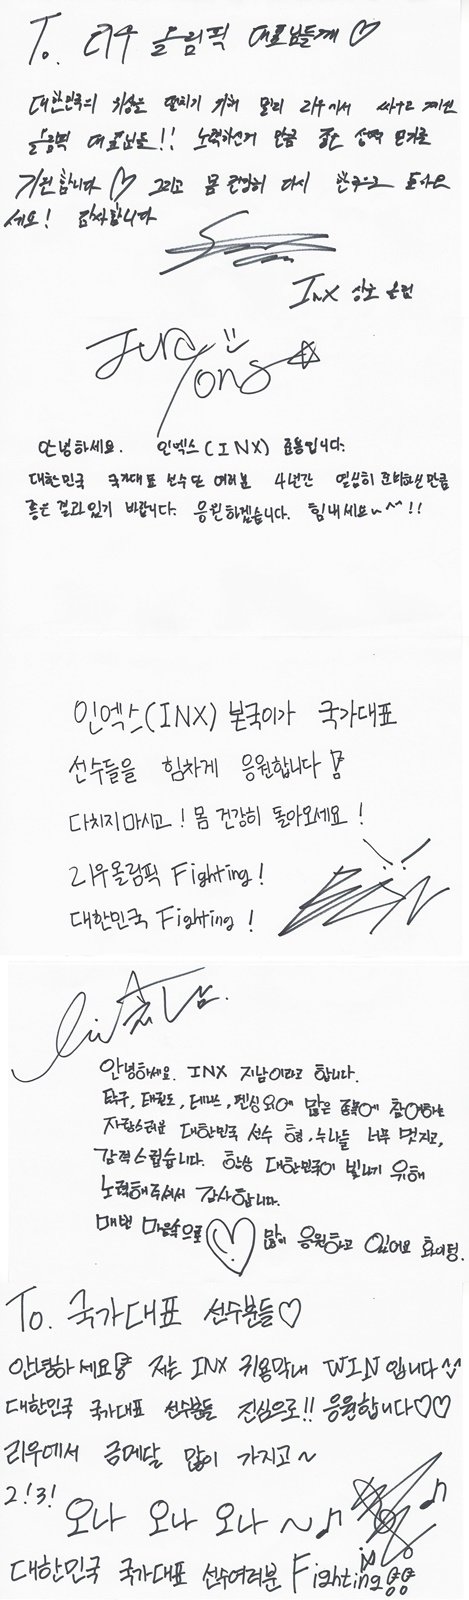 To. 리우 올림픽 대표님들께♡
대한민국의 기상을 펼치기 위해 멀리 리우에서 싸우고 계신
올림픽 대표님들!! 노력하신거 만큼 좋은 성적 얻기를
기원합니다♡ 그리고 몸 건강히 다시 한국으로 돌아오
세요! 감사합니다
INX 상호 올림
Jun
Yong
안녕하세요. 인엑스(INX) 준용입니다.
대한민국 국가대표 선수단 여러분 4년간 열심히 준비하신만큼
좋은 결과있기 바랍니다. 응원하겠습니다. 힘내세요~^^!!
인엑스(INX) 본국이가 국가대표
선수들을 힘차게 응원합니다
다치지마시고! 몸 건강히 돌아오세요!
리우올림픽 Fighting!
대한민국 Fighting!
안녕하세요. INX 지남이라고 합니다.
탁구, 태권도, 테니스, 펜싱 외에 많은 종목에 참여하는
자랑스러운 대한민국 선수 형, 누나들 너무 멋지고,
감격스럽습니다. 항상 대한민국이 빛나기 위해
노력해주셔서 감사합니다.
매번 마음속으로 ♡ 많이 응원하고 있어요 화이팅.
To. 국가대표 선수분들♡
안녕하세요 저는 INX 귀용막내 WIN입니다^^
대한민국 국가대표 선수분들 진심으로!! 응원합니다♡♡
리우에서 금메달 많이 가지고~
2!3!
오나 오나 오나 ~♪
대한민국 국가대표 선수여러분 Fighting